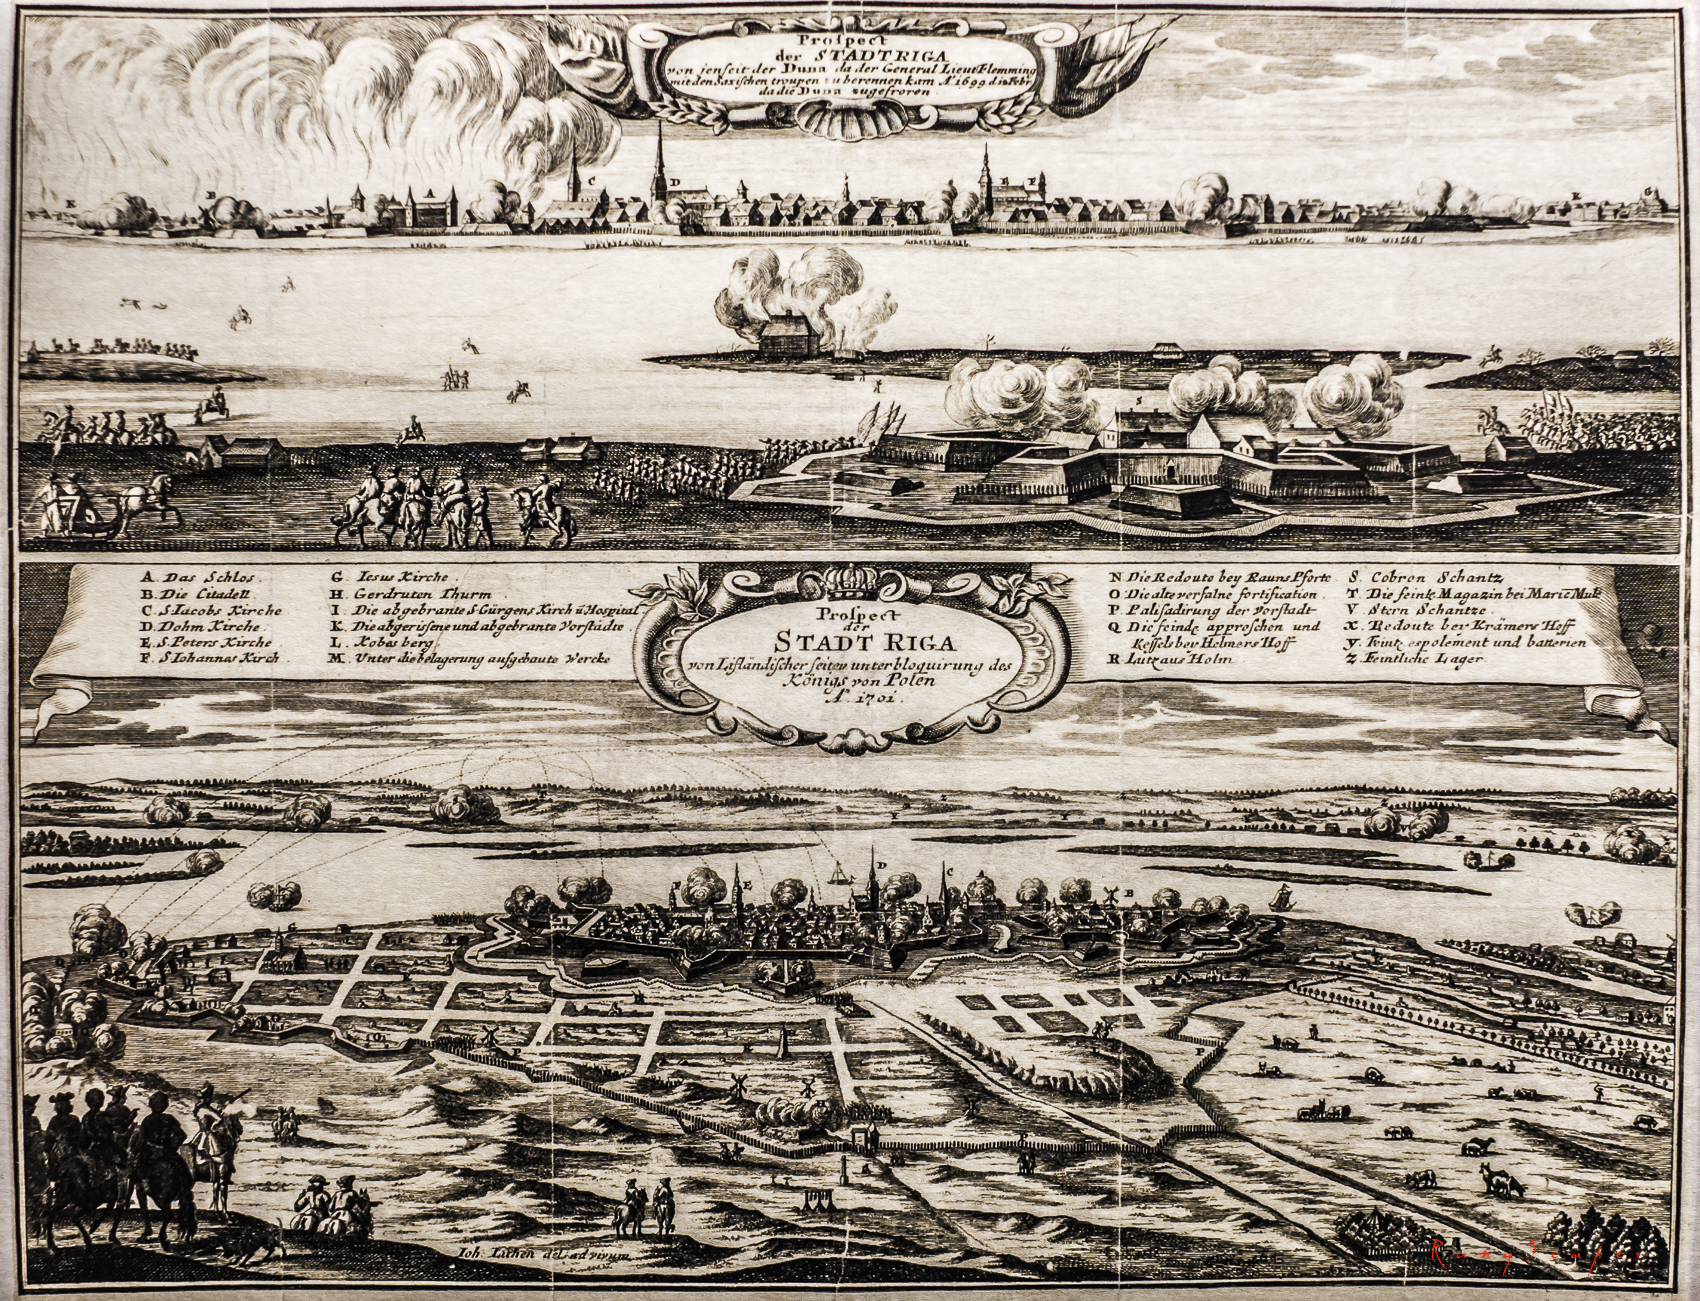 Prospect
der STADT RIGA
von jenseit der Duna da der General Lieut Flemming
mit den Saxischen troupen zu berennen kam Aº 1699 d. 12 Febr.
da die Duna zugefroren
K
B
A
C
D
E
F
K
G
S
A. Das Schlos.
B. Die Citadell
C. S. Iacobs Kirche
D. Dohm Kirche.
E. S. Peters Kirche
F. S. Iohannas Kirch.
G. Iesus Kirche.
H. Gerdruten Thurm.
I. Die abgebrante S. Gürgens Kirch ũ Hospital
K. Die abgerissene und abgebrante Vorstädte
L. Kobes berg
M. Unter die belagerung aufgebaute Wercke
Prospect
der
STADT RIGA
von Lifländischer seiten unter bloquirung des
Königs von Polen
Aº. 1701.
N Die Redoute bey Rauns Pforte
O Die alte versalne fortification.
P. Palisadirung der Vorstadt
Q Die feindͤ approschen und
Kessels bey Helmers Hoff
R Lutzaus Holm
S. Cobron Schantz
T. Die feintͤ Magazin bei Mariͤ Mulͤ
V. Stern Schantze.
X. Redoute bey Krämers Hoff
Y. Feintͤ espolement und batterien
Z. Feintliche Lager.
F
E
D
C
A
B
P
P
P
Ioh. Lithen del. ad vivum